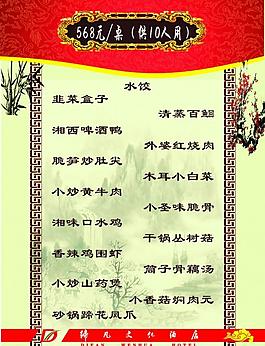 568元/桌（供10人用）
水饺
韭菜盒子
清蒸百鲴
湘西啤酒鸭
外婆红烧肉
脆笋炒肚尖
木耳小白菜
小炒黄牛肉
小圣味脆骨
湘味口水鸡
干锅丛树菇
香辣鸡围虾
筒子骨藕汤
小炒山药煲
小香菇焖肉元
砂锅蹄花凤爪
缔凡文化酒店
DIFAN WENHUA HOTEL